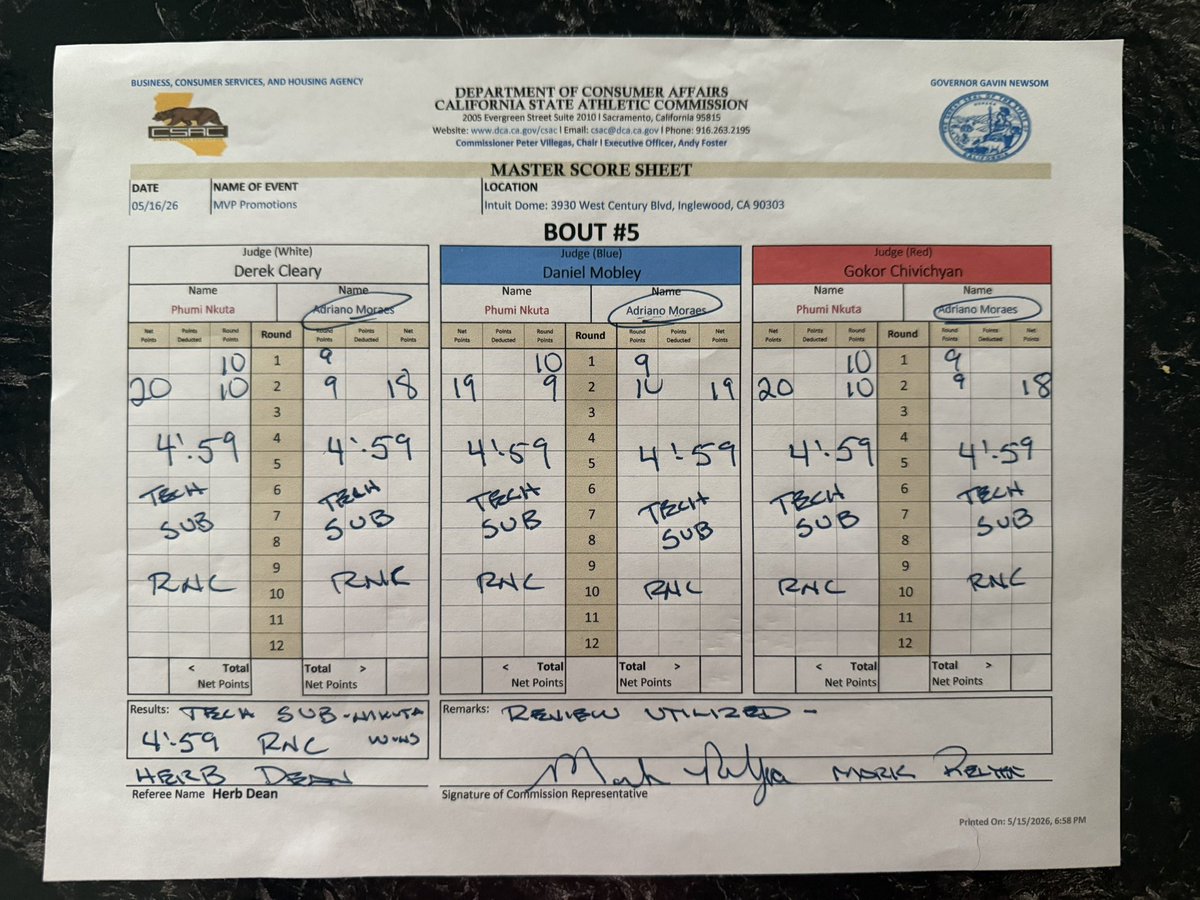 BUSINESS, CONSUMER SERVICES, AND HOUSING AGENCY
GOVERNOR GAVIN NEWSOM
CSAC
DEPARTMENT OF CONSUMER AFFAIRS
CALIFORNIA STATE ATHLETIC COMMISSION
2005 Evergreen Street Suite 2010 | Sacramento, California 95815
Website: www.dca.ca.gov/csac | Email: csac@dca.ca.gov | Phone: 916.263.2195
Commissioner Peter Villegas, Chair | Executive Officer, Andy Foster
MASTER SCORE SHEET
DATE NAME OF EVENT LOCATION
05/16/26 MVP Promotions Intuit Dome: 3930 West Century Blvd, Inglewood, CA 90303
BOUT #5
Judge (White) Judge (Blue) Judge (Red)
Derek Cleary Daniel Mobley Gokor Chivichyan
Name Name Name Name Name Name
Phumi Nkuta Adriano Moraes Phumi Nkuta Adriano Moraes Phumi Nkuta Adriano Moraes
Net Points Points Deducted Round Points Round Round Points Points Deducted Net Points Net Points Points Deducted Round Points Round Round Points Points Deducted Net Points Net Points Points Deducted Round Points Round Round Points Points Deducted Net Points
10 1 9 10 1 9 10 1 9
20 10 2 9 18 19 9 2 10 19 20 10 2 9 18
3 3 3
4 4 4
4:59 4:59 4:59 4:59 4:59 4:59
5 5 5
6 6 6
TECH TECH TECH TECH TECH TECH
7 7 7
SUB SUB SUB SUB SUB SUB
8 8 8
9 9 9
RNC RNC RNC RNC RNC RNC
10 10 10
11 11 11
12 12 12
< Total Total > < Total Total > < Total Total >
Net Points Net Points Net Points Net Points Net Points Net Points
Results: TECH SUB - NKUTA Remarks: REVIEW UTILIZED -
4:59 RNC WINS
HERB DEAN MARK
Referee Name Herb Dean Signature of Commission Representative
Printed On: 5/15/2026, 6:58 PM